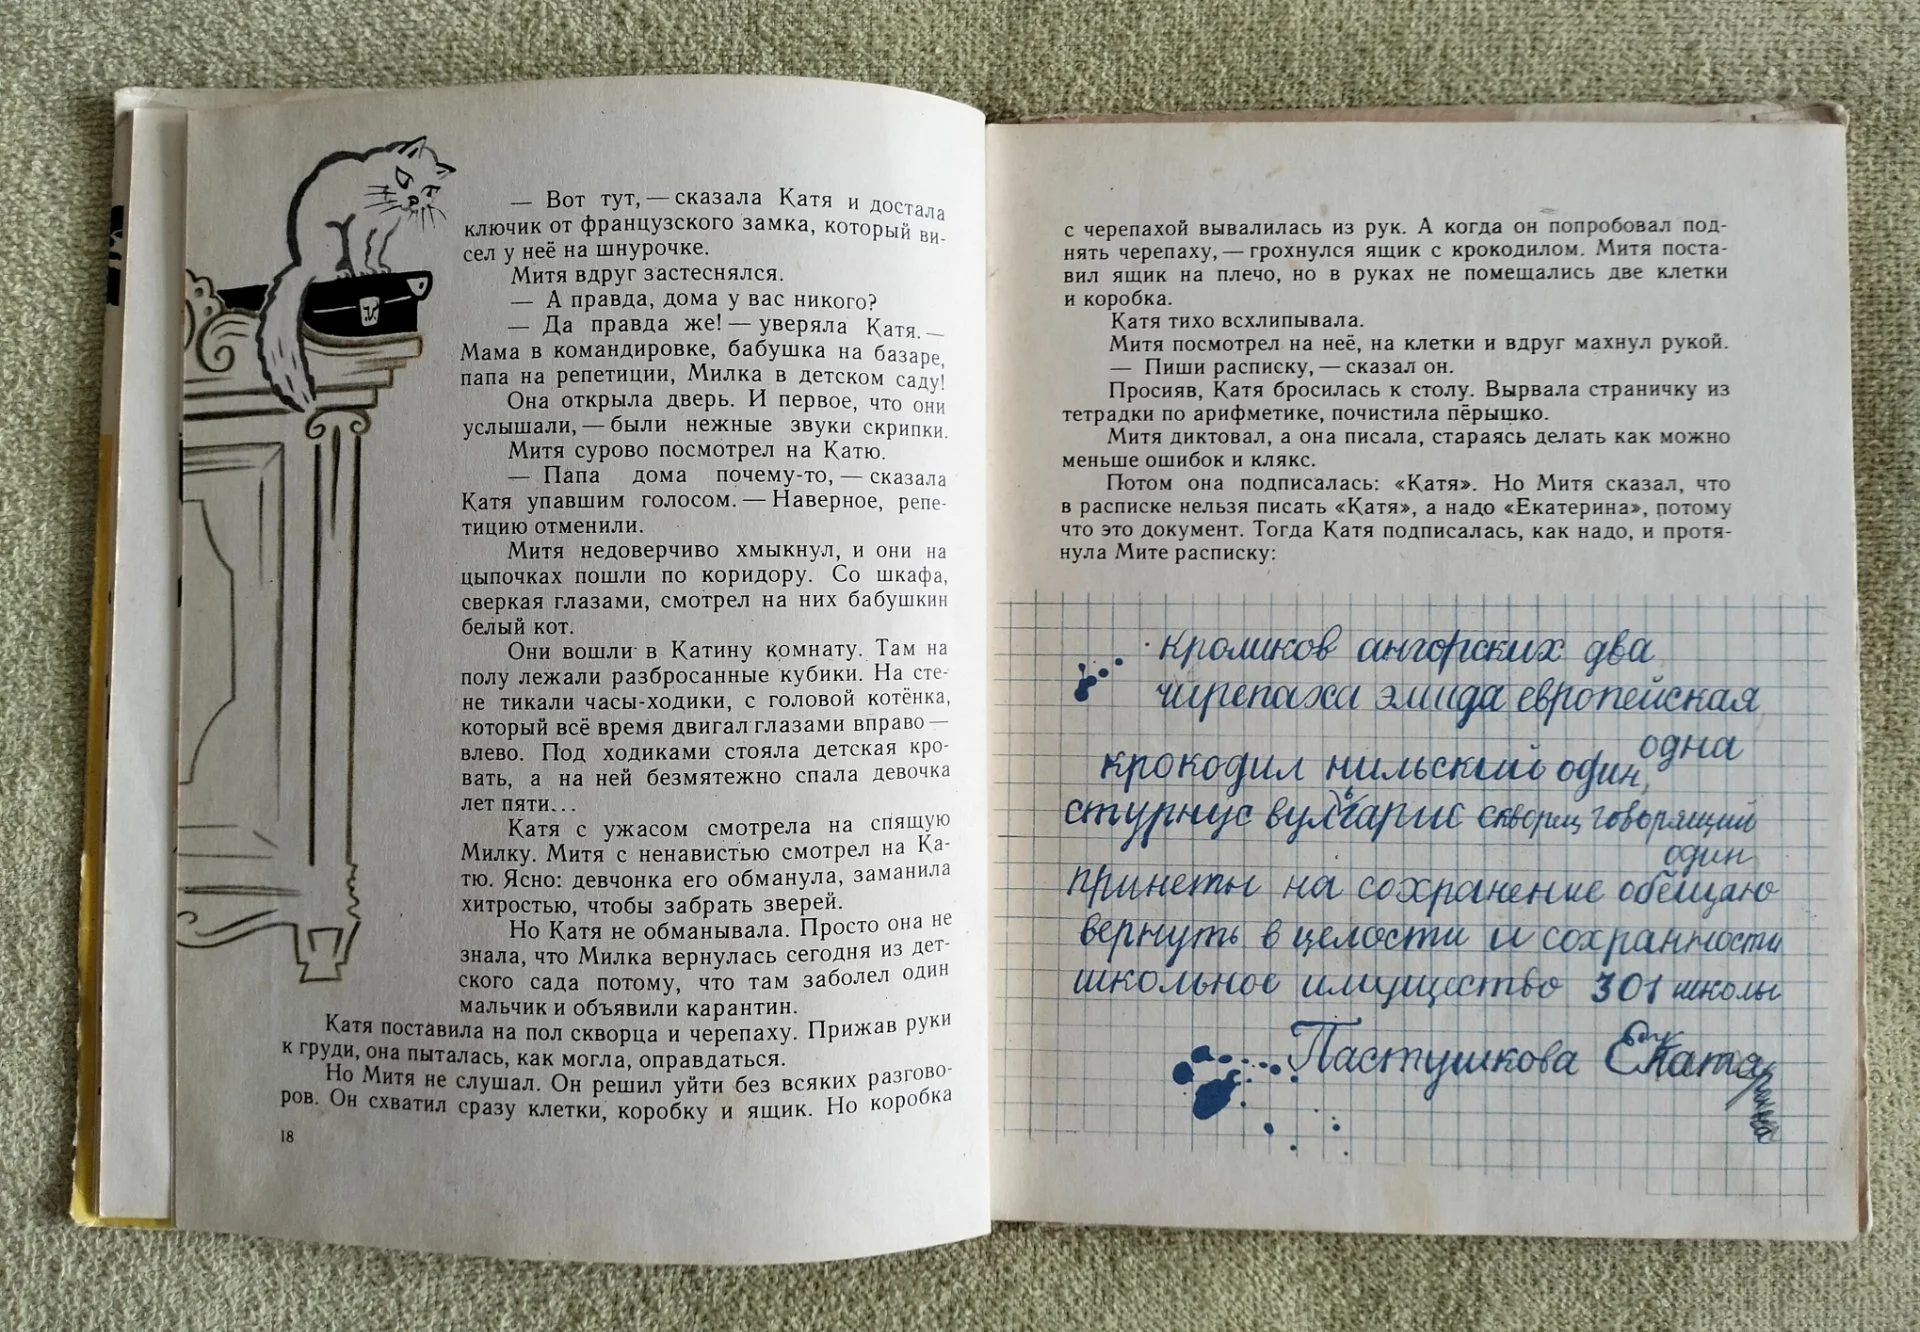 — Вот тут, — сказала Катя и достала
ключик от французского замка, который ви-
сел у неё на шнурочке.
Митя вдруг застеснялся.
— А правда, дома у вас никого?
— Да правда же! — уверяла Катя. —
Мама в командировке, бабушка на базаре,
папа на репетиции, Милка в детском саду!
Она открыла дверь. И первое, что они
услышали, — были нежные звуки скрипки.
Митя сурово посмотрел на Катю.
— Папа дома почему-то, — сказала
Катя упавшим голосом. — Наверное, репе-
тицию отменили.
Митя недоверчиво хмыкнул, и они на
цыпочках пошли по коридору. Со шкафа,
сверкая глазами, смотрел на них бабушкин
белый кот.
Они вошли в Катину комнату. Там на
полу лежали разбросанные кубики. На сте-
не тикали часы-ходики, с головой котёнка,
который всё время двигал глазами вправо —
влево. Под ходиками стояла детская кро-
вать, а на ней безмятежно спала девочка
лет пяти...
Катя с ужасом смотрела на спящую
Милку. Митя с ненавистью смотрел на Ка-
тю. Ясно: девчонка его обманула, заманила
хитростью, чтобы забрать зверей.
Но Катя не обманывала. Просто она не
знала, что Милка вернулась сегодня из дет-
ского сада потому, что там заболел один
мальчик и объявили карантин.
Катя поставила на пол скворца и черепаху. Прижав руки
к груди, она пыталась, как могла, оправдаться.
Но Митя не слушал. Он решил уйти без всяких разгово-
ров. Он схватил сразу клетки, коробку и ящик. Но коробка
18
с черепахой вывалилась из рук. А когда он попробовал под-
нять черепаху, — грохнулся ящик с крокодилом. Митя поста-
вил ящик на плечо, но в руках не помещались две клетки
и коробка.
Катя тихо всхлипывала.
Митя посмотрел на неё, на клетки и вдруг махнул рукой.
— Пиши расписку, — сказал он.
Просияв, Катя бросилась к столу. Вырвала страничку из
тетрадки по арифметике, почистила пёрышко.
Митя диктовал, а она писала, стараясь делать как можно
меньше ошибок и клякс.
Потом она подписалась: «Катя». Но Митя сказал, что
в расписке нельзя писать «Катя», а надо «Екатерина», потому
что это документ. Тогда Катя подписалась, как надо, и протя-
нула Мите расписку:
кроликов ангорских два
чирепаха эмида европейская
одна
крокодил нильский один,
стурнус вулгарис скворец говорящий
один
принеты на сохранение обещаю
вернуть в целости и сохранности
школьное имущество 301 школы
Пастушкова Екатерина